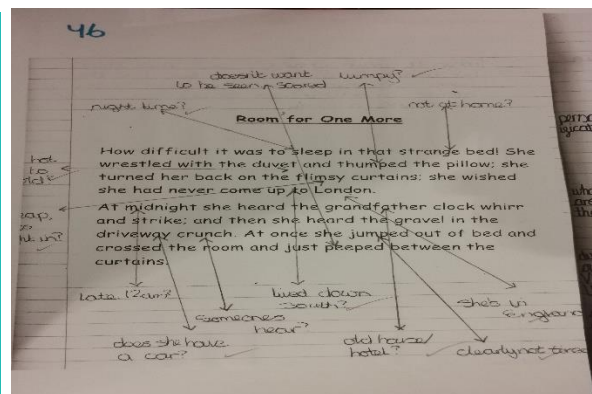 46
doesn't want lumpy?
to be seen & scared
night time? not at home?
Room for One More
How difficult it was to sleep in that strange bed! She
wrestled with the duvet and thumped the pillow; she
turned her back on the flimsy curtains; she wished
she had never come up to London.
At midnight she heard the grandfather clock whirr
and strike; and then she heard the gravel in the
driveway crunch. At once she jumped out of bed and
crossed the room and just peeped between the
curtains.
late 12am? lived down she's in
south? England
someones
near?
does she have old house/
a car? hotel? clearly not tired